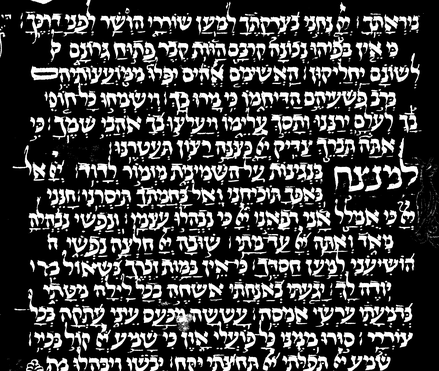 ביראתך | יי נחני בצדקתך למען שוררי הושר לפני דרכך
כי אין בפיהו נכונה קרבם הוות קבר פתוח גרונם
לשונם יחליקון | האשימם אלהים יפלו ממועצותיהם
ברב פשעיהם הדיחמו כי מרו בך | וישמחו כל חוסי
בך לעלם ירננו ותסך עלימו ויעלצו בך אהבי שמך | כי
אתה תברך צדיק יי כצנה רצון תעטרנו
למנצח בנגינות על השמינית מזמור לדוד | יי אל
באפך תוכיחני ואל בחמתך תיסרני חנני
יי כי אמלל אני רפאני יי כי נבהלו עצמי | ונפשי נבהלה
מאד ואתה יי עד מתי | שובה יי חלצה נפשי ה
הושיעני למען חסדך | כי אין במות זכרך בשאול מי
יודה לך | יגעתי באנחתי אשחה בכל לילה מטתי
בדמעתי ערשי אמסה | עששה מכעס עיני עתקה בכל
צוררי | סורו ממני כל פועלי און כי שמע יי קול בכיי |
שמע יי תפלתי יי תחינתי יקח | יבשו ויבהלו